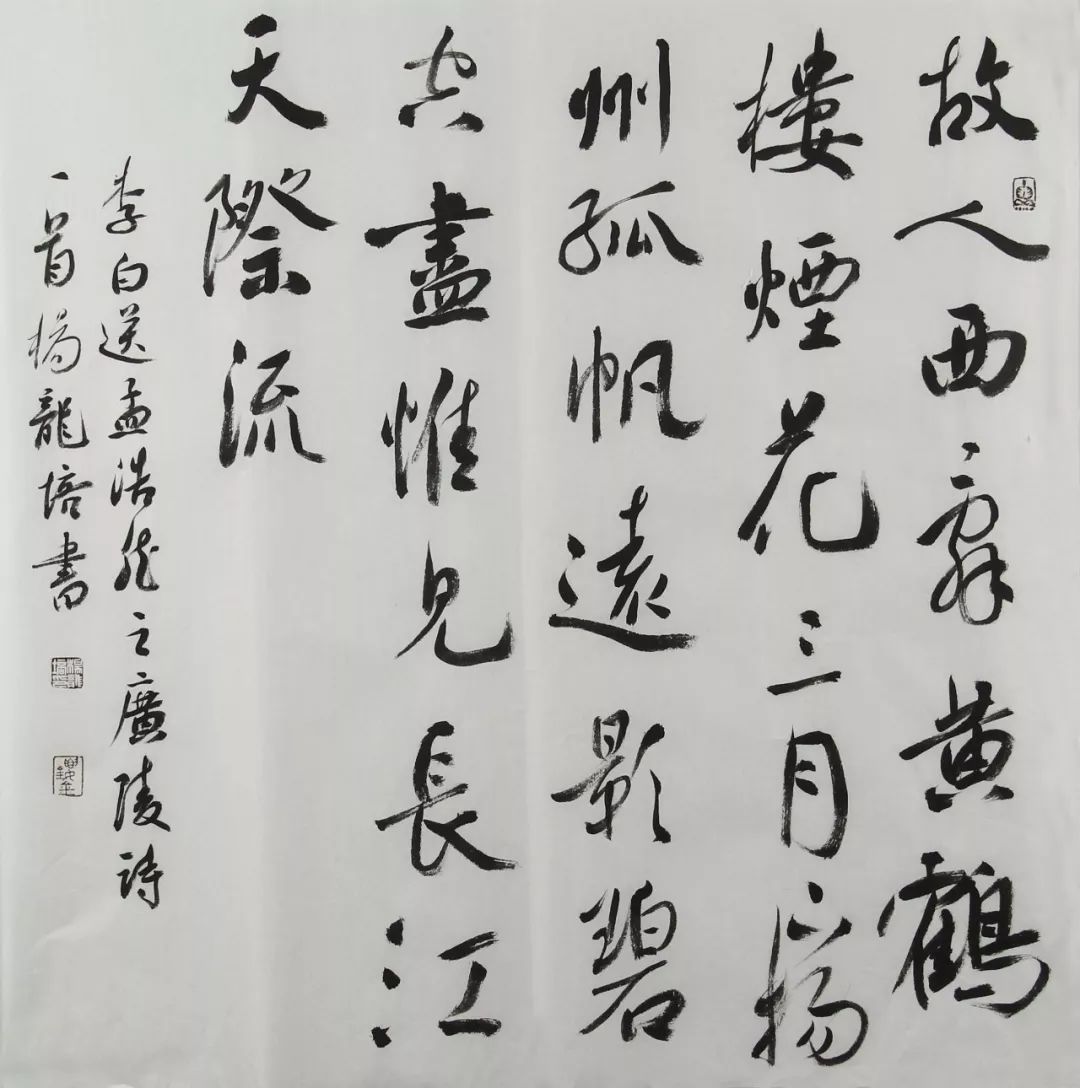 故人西辭黄鶴
樓煙花三月下揚
州孤帆遠影碧
空盡惟見長江
天際流
李白送孟浩然之廣陵詩
一首楊龍培書